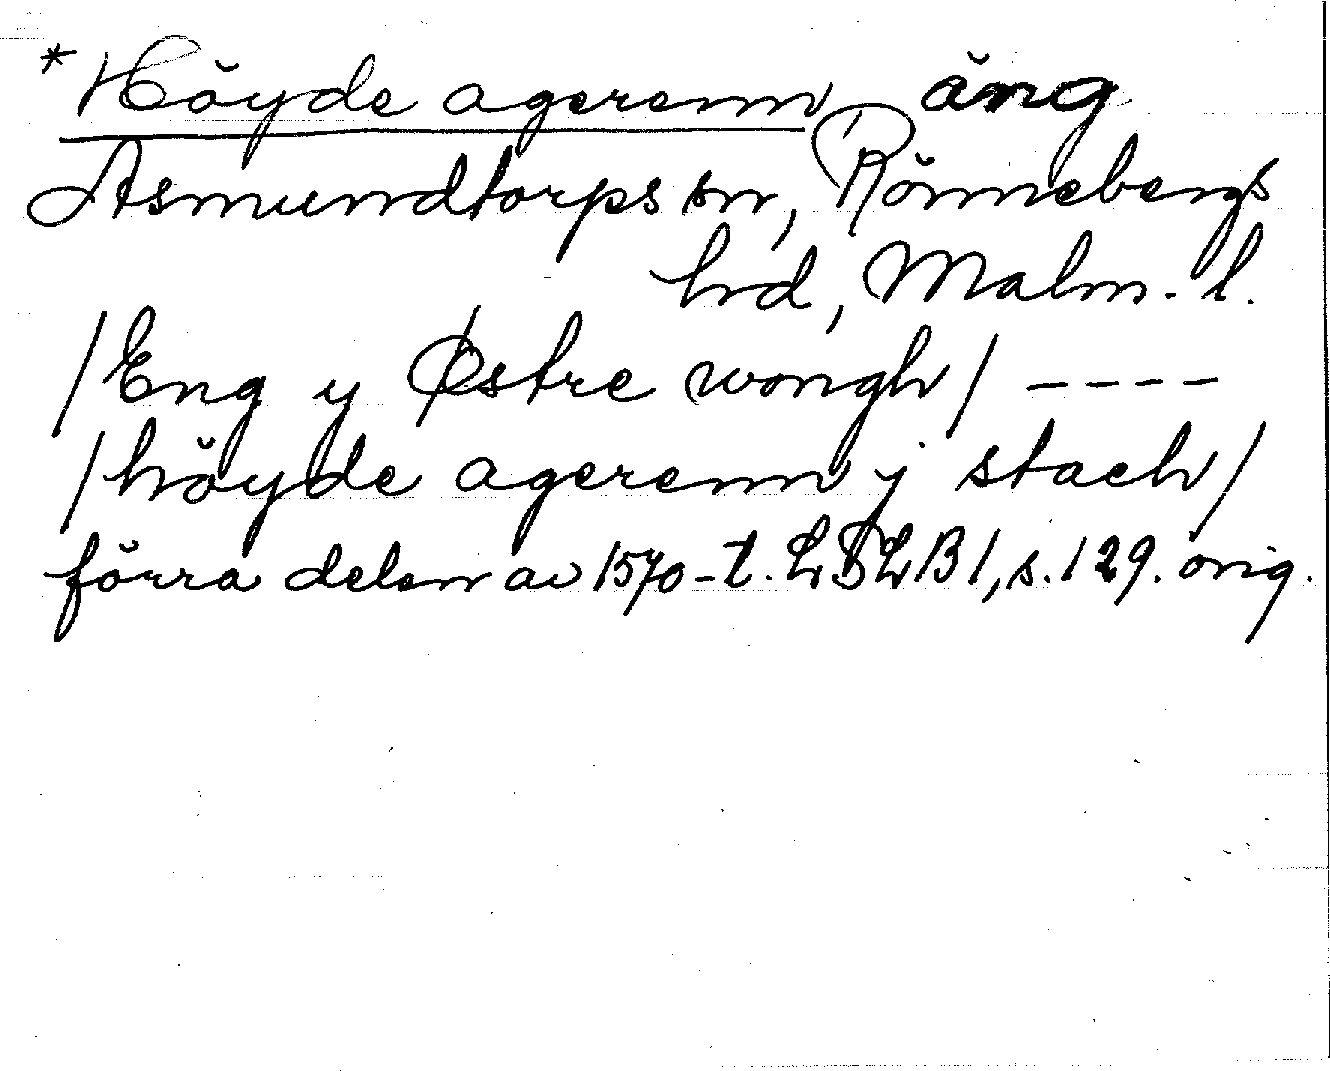 *Höyde agerenn äng
Asmundtorps sn, Rönnebergs
hd, Malm. l.
/Eng y Østre wongh/ ----
/höyde agerenn y stach/
förra delen av 1570-t. LSLB1, s. 129. orig.